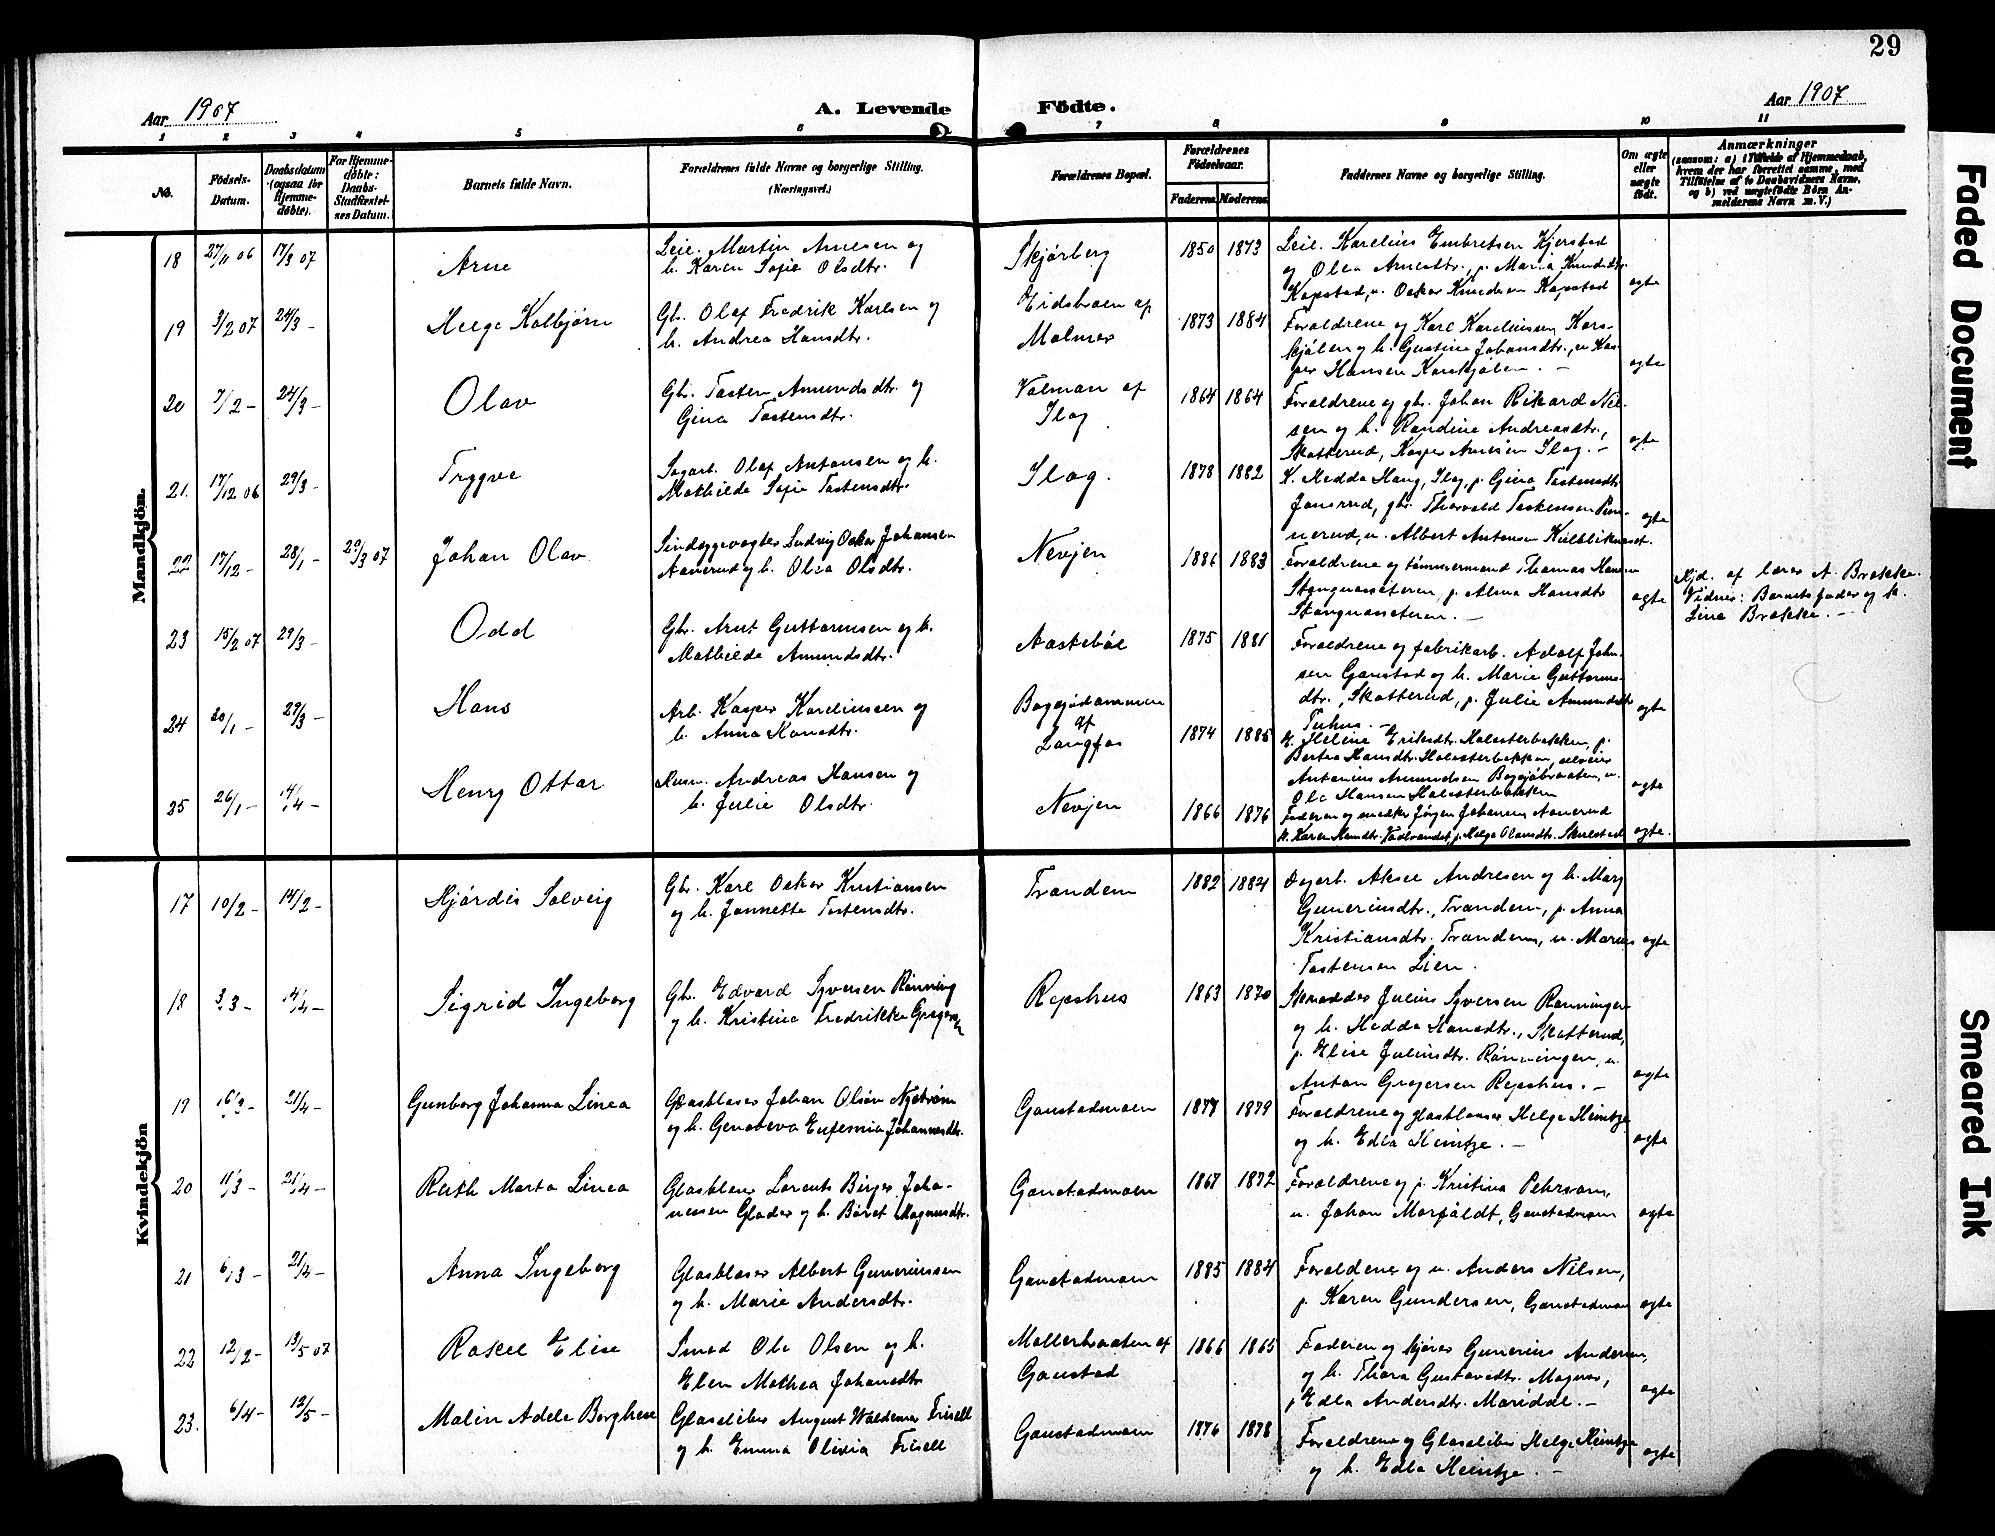 29
Aar 1907
A. Levende Födte.
Aar 1907
1 2 3 4 5 6 7 8 9 10 11
No.
Födsels-Datum.
Daabsdatum (ogsaa for Hjemmedøbte).
For Hjemmedøbte: Daabs-Stadfæstelsens Datum.
Barnets fulde Navn.
Forældrenes fulde Navne og borgerlige Stilling. (Næringsvei.)
Forældrenes Bopæl.
Forældrenes Födselsaar.
Faderens. Moderens.
Faddernes Navne og borgerlige Stilling.
Om ægte eller uægte født.
Anmærkninger
(saasom: a) i Tilfælde af Hjemmedaab, hvem der har forrettet samme, med Tilføielse af to Daabsvidners Navne, og b) ved uægtefødte Børn Anmelderens Navn m. V.)
Mandkjön.
18 27/11 06 17/3 07 Arne
Leil. Martin Arnesen og
h. Karen Sofie Olsdtr.
Skjørberg 1850 1873
Leil. Karelius Embretsen Kjerstad
og Olea Arnesdtr., p. Maria Knudsdtr.
Kapstad, u. Oskar Knudsen Kapstad
ægte
19 3/2 07 24/3 - Helge Kolbjørn
Gbr. Olaf Fredrik Karlsen og
h. Andrea Hansdtr.
Eidsbraaten af
Malmer 1873 1884
Forældrene og Karl Karelinssen Kors-
kjølen og h. Gustine Johansdtr., u. Kas-
per Hansen Korskjølen. -
ægte
20 7/2 - 24/3 - Olav
Gbr. Tosten Amundsdtr. og
Gina Tostensdtr.
Volman af
Ilag 1864 1864
Forældrene og gbr. Johan Rikard Nil-
sen og h. Randine Andreasdtr.,
Skatterud, Kasper Arnesen Ilag. -
ægte
21. 17/12 06 29/3 - Trygve
Sagarb. Olaf Antonsen og h.
Mathilde Sofie Tostensdtr.
Ilag. 1878 1882
K. Hedda Haug, Ilag, p. Gina Tostensdtr
Jonsrud, gbr. Thorvald Tostensen
u. Albert Antonsen
ægte
22 17/12 - 28/1 - 29/3 07 Johan Olav
Ludvig Oskar Johansen
Aanerud og h. Olea Olsdtr.
Nevjen 1886 1883
Forældrene og tømmermand Thomas Hansen
Stangnæseteren, p. Alma Hansdtr
Stangnæseteren. -
ægte
Hjd. af lærer A. Brække.
Vidner: Barnets fader og h.
Lina Brække. -
23 15/2 07 29/3 - Odd
Gbr. Arnt Guttormsen og h.
Mathilde Amundsdtr.
Aastebøl 1875 1881
Forældrene og fabrikarb. Adolf Johan-
sen Gaustad og h. Marie Guttorms-
dtr., Skatterud, p. Julie Amundsdtr
Tuhus. -
ægte
24 20/1 - 29/3 - Hans
Arb. Kasper Karelinssen og
h. Anna Hansdtr.
Bøgsjødammen
af
Langfos 1874 1885
K. Helene Eriksdtr. Holesterbakken, p.
Bertea Hansdtr. Holesterbakken,
Antonius Amundsen u.
Ole Hansen Holesterbakken
ægte
25 26/1 - 14/4 - Henry Ottar
Husm. Andreas Hansen og
h. Julie Olsdtr.
Nevjen 1866 1876
Faderen og snedker Jørgen Johansen Aanerud
k. Karen p. Helga Olausdtr. Skulestad
ægte.
Kvindekjön
17 10/2 - 14/2 - Hjørdis Solveig
Gbr. Karl Oskar Kristiansen
og h. Jannette Tostensdtr.
Trandem 1882 1884
Dagarb. Aksel Andresen og h. Mary
Gunerinsdtr., Trandem, p. Anna
Kristiansdtr. Trandem, u. Marius
Tostensen Lien.
ægte
18 3/3 - 14/4 - Sigrid Ingeborg
Gbr. Edvard Syversen Rønning
og h. Kristine Fredrikke Gregersdtr
Repshus 1863 1870
Skrædder Julius Syversen Rønningen
og h. Hedda Hansdtr., Skatterud,
p. Elise Julinsdtr. Rønningen, u.
Anton Gregersen Repshus. -
ægte
19 16/3 - 21/4 - Gunborg Johanna Linea
Glasblaser Johan Olsön Nystrøm
og h. Genoveva Eufemia Johannesdtr.
Gaustadmoen 1877 1879
Forældrene og glasblaser Helge Heintze
og h. Edla Heintze. -
ægte
20 11/3 - 21/4 - Ruth Marta Linea
Glasblaser Lorents Birger Joha-
nessen Glader og h. Børet Magnusdtr.
Gaustadmoen 1867 1872
Forældrene og p. Kristina Pehrson,
u. Johan Morfäldt, Gaustadmoen
ægte
21 6/3 - 21/4 - Anna Ingeborg
Glasblaser Albert Gunerinssen
og h. Marie Andersdtr.
Gaustadmoen 1885 1884
Forældrene og u. Anders Nilsen,
p. Karen Gundersen, Gaustadmoen
ægte
22 12/2 - 13/5 07 Rakel Elise
Smed Ole Olsen og h.
Elen Mathea Johansdtr
Mallerbraaten af
Gaustad 1866 1865
Faderen og kjører Gunerius Andersen,
og h. Thora Gustavsdtr. Magnor,
p. Edla Andersdtr. Moriddel. -
ægte
23. 6/4 - 12/5 - Malin Adele Borghese
Glassliber August Waldemar Frisell
og h. Emma Olivia Frisell
Gaustadmoen 1876 1878
Forældrene og Glassliber Helge Heintze
og h. Edla Heintze. -
ægte
Faded Document
Smeared Ink